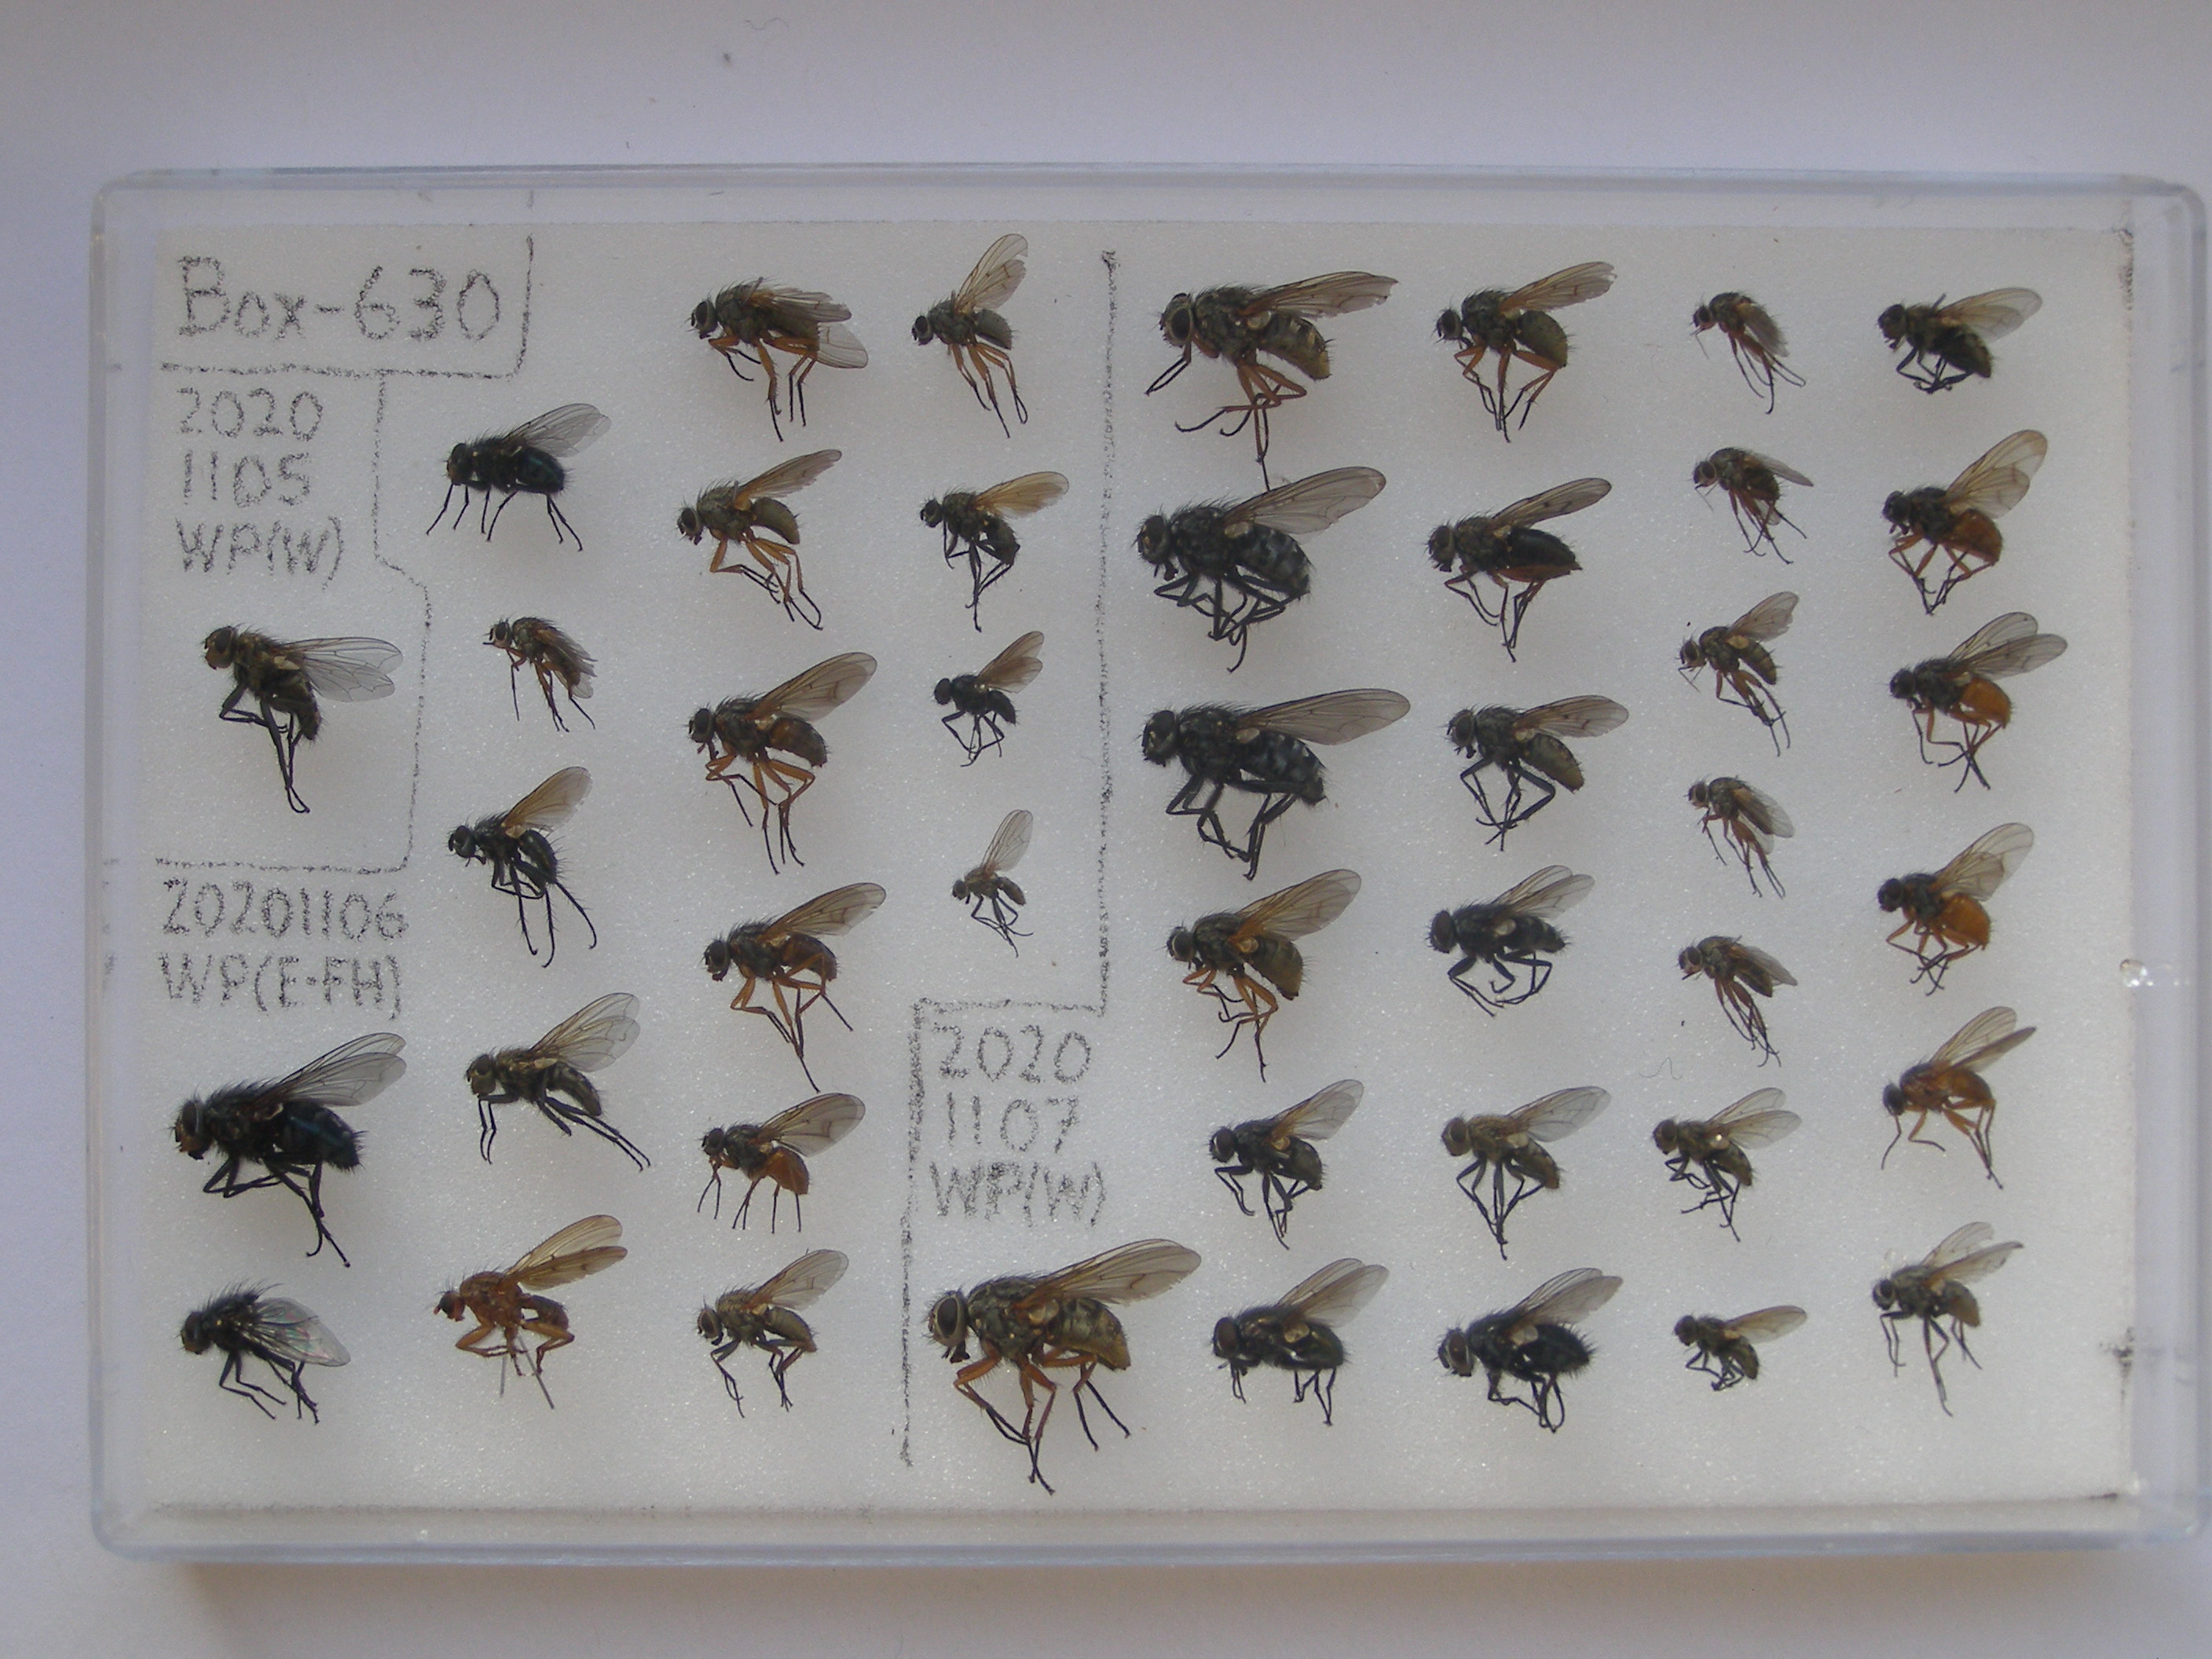 Box-630
2020
1105
WP(W)
20201106
WP(E-FH)
2020
1107
WP(W)